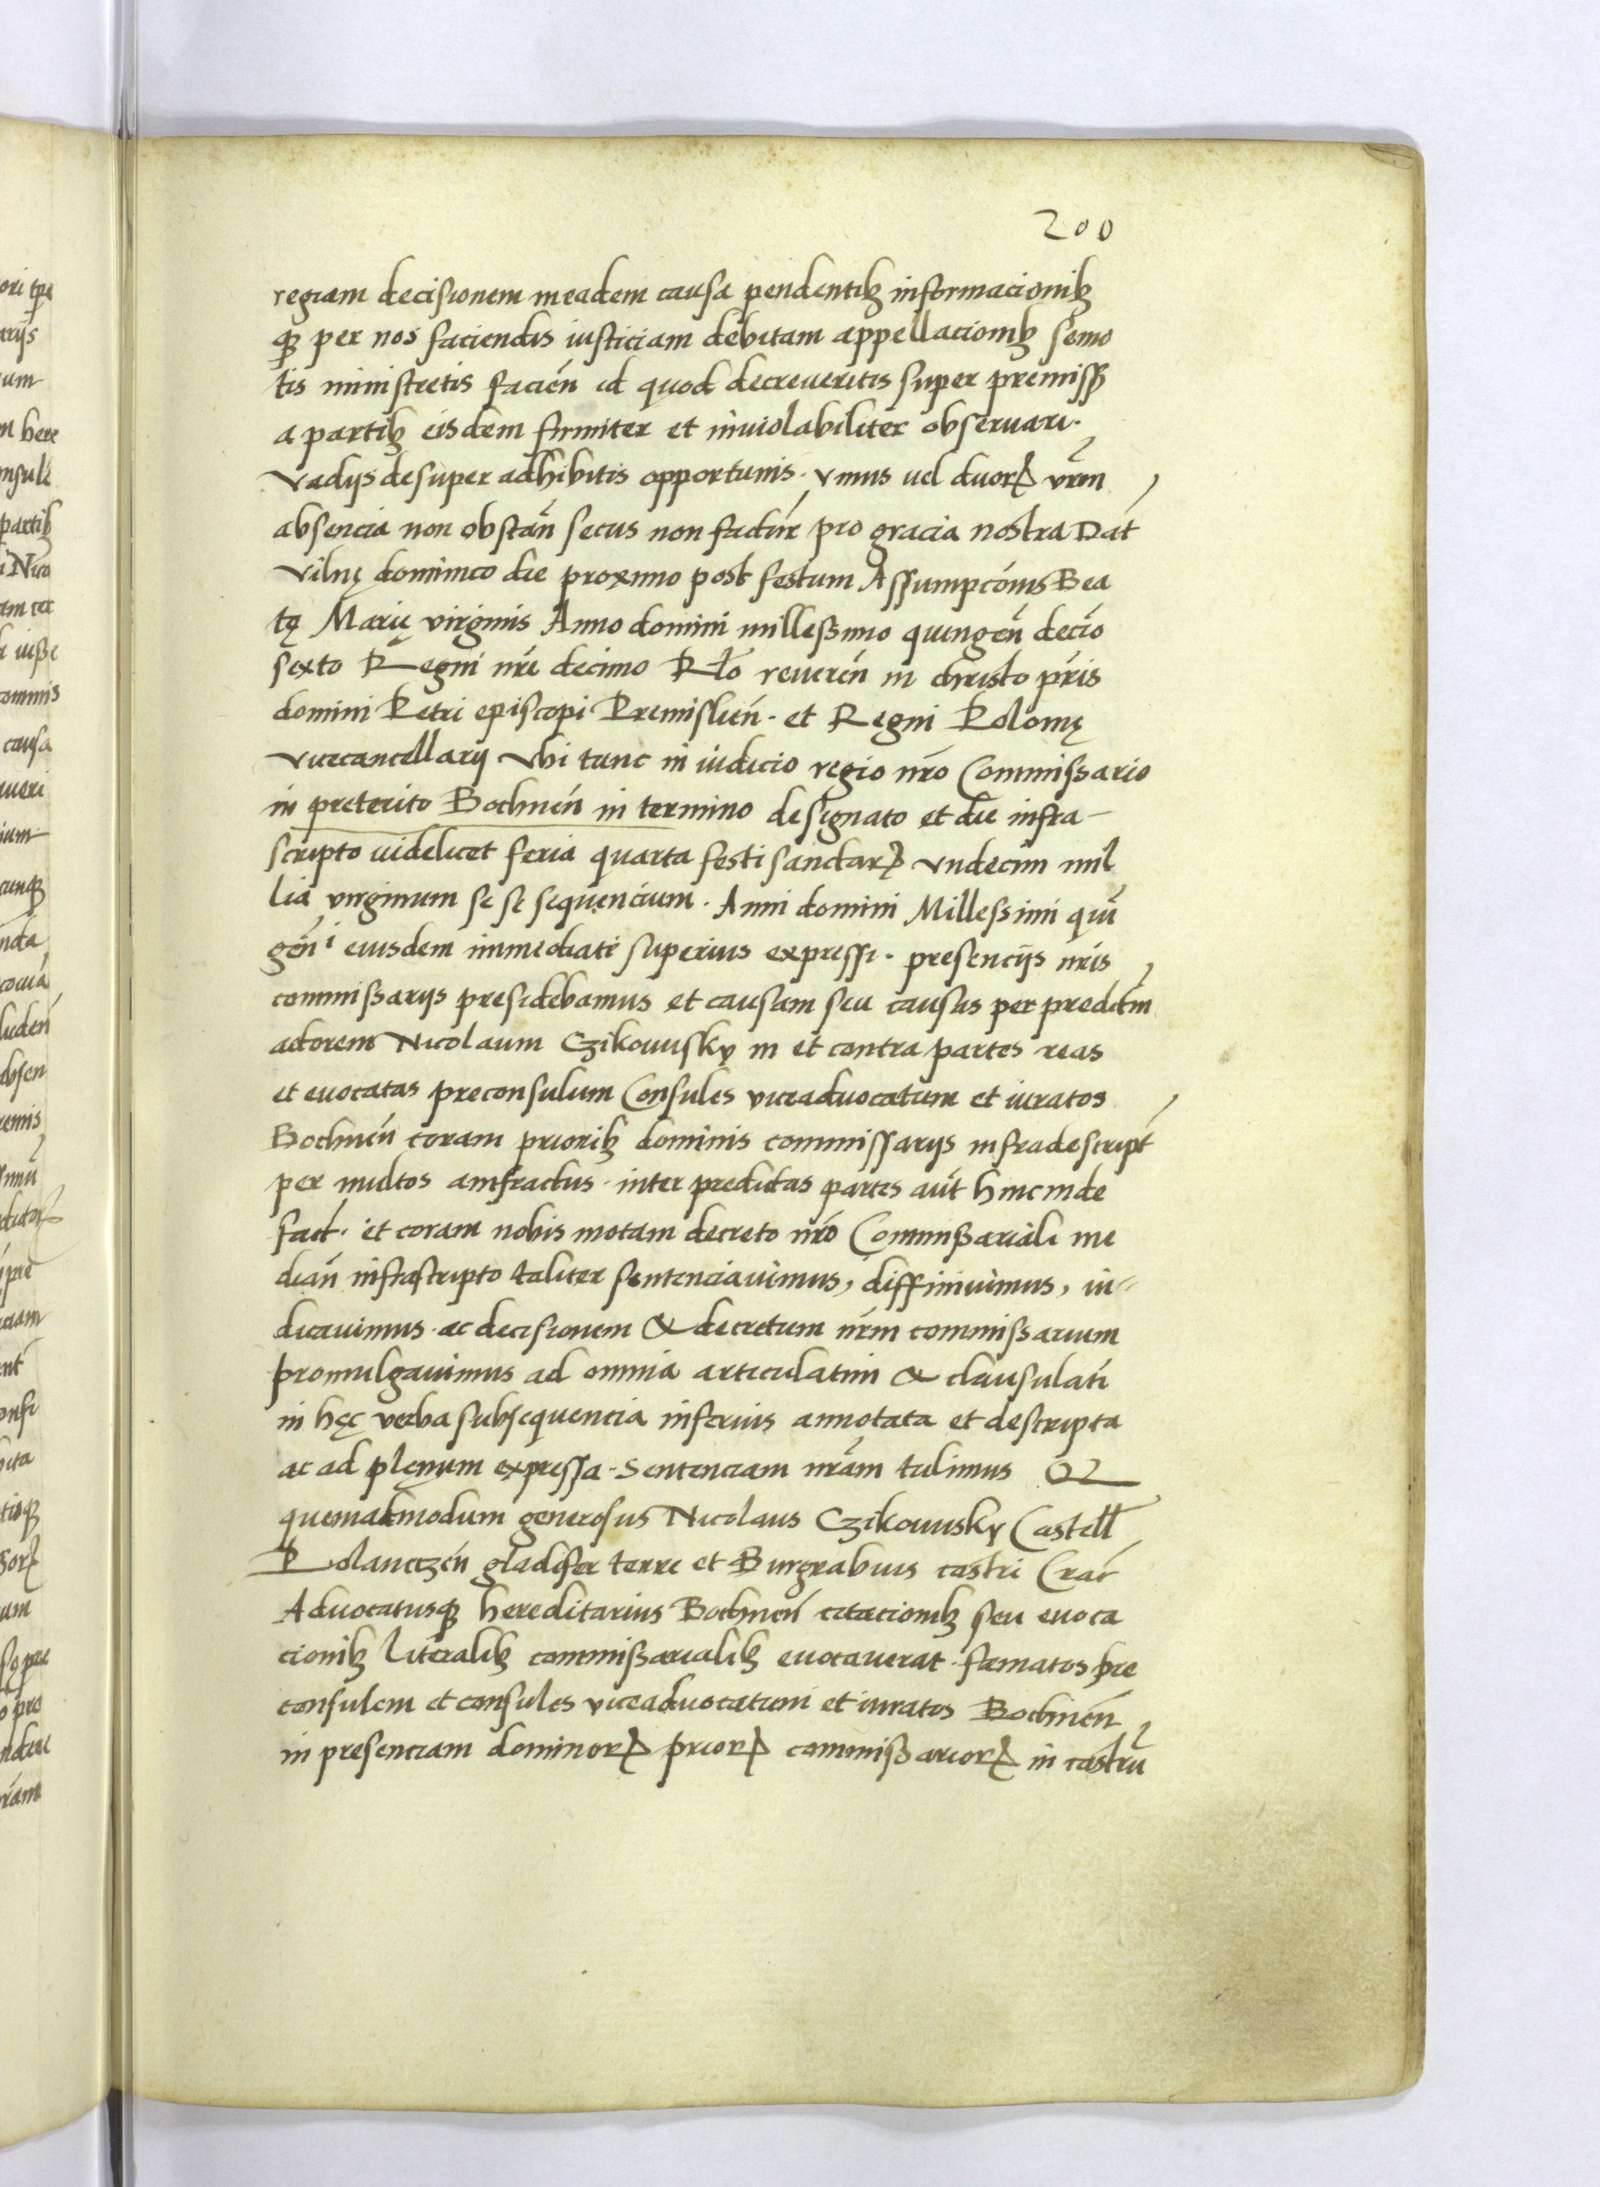 200
regiam decisionem in eadem causa pendentibꝫ informacionibꝫ
qꝫ per nos faciendis iusticiam debitam appellacionibꝫ semo
tis ministretis facien̄ id quod decreueritis super premissꝫ
a partibꝫ eisdem firmiter et inuiolabiliter obseruari.
Vadijs desuper adhibitis opportunis. Vnius uel duorꝝ vr̄m
absencia non obstan̄ secus non factur̄ pro gracia nostra Dat̄
Vilnę dominico die proximo post festum Assumpcōnis Bea
tę Marię virginis Anno domini millessimo quingen̄ decīo
sexto Regni nr̄i decimo Rło reueren̄ in christo pr̄is
domini Petri episcopi Premislien̄. et Regni Polonię
vicecancellarij Vbi tunc in iudicio regio nr̄o Commissario
in preterito Bochnen̄ in termino designato et die infra-
scripto uidelicet feria quarta festi sanctarꝝ vndecim mil
lia virginum se se sequencium. Anni domini Millessimi quī
gen̄i eiusdem immediati superius expressi. presencijs nr̄is
commissarijs presidebamus et causam seu causas per predictm̄
actorem Nicolaum Czikowsky in et contra partes reas
et euocatas preconsulum Consules viceaduocatum et iuratos
Bochnen̄ coram prioribꝫ dominis commissarijs infradescript̄
per multos amfractus. inter predictas partes aut̄ hinc inde
fact̄. et coram nobis motam decreto nr̄o Commissariali me
dian̄ infrascripto taliter sentenciauimus, diffiniuimus, iu-
dicauimus. ac decisionem & decretum nr̄m commissarium
promulgauimus ad omnia articulatim & clausulatī
in hęc verba subsequencia inferius annotata et descripta
ac ad plenum expressa. Sentenciam nr̄am tulimus Qz
quematmodum generosus Nicolaus Czikowsky Castell̄
Polanetzen̄ gladifer terre et Burgrabius castri Crac̄
Aduocatusqꝫ hereditarius Bochnen̄ citacionibꝫ seu euoca
cionibꝫ literalibꝫ commissarialibꝫ euocauerat. famatos pre
consulem et consules viceaduocatum et iuratos Bochnen̄
in presenciam dominorꝝ priorꝝ commissariorꝝ in castrū